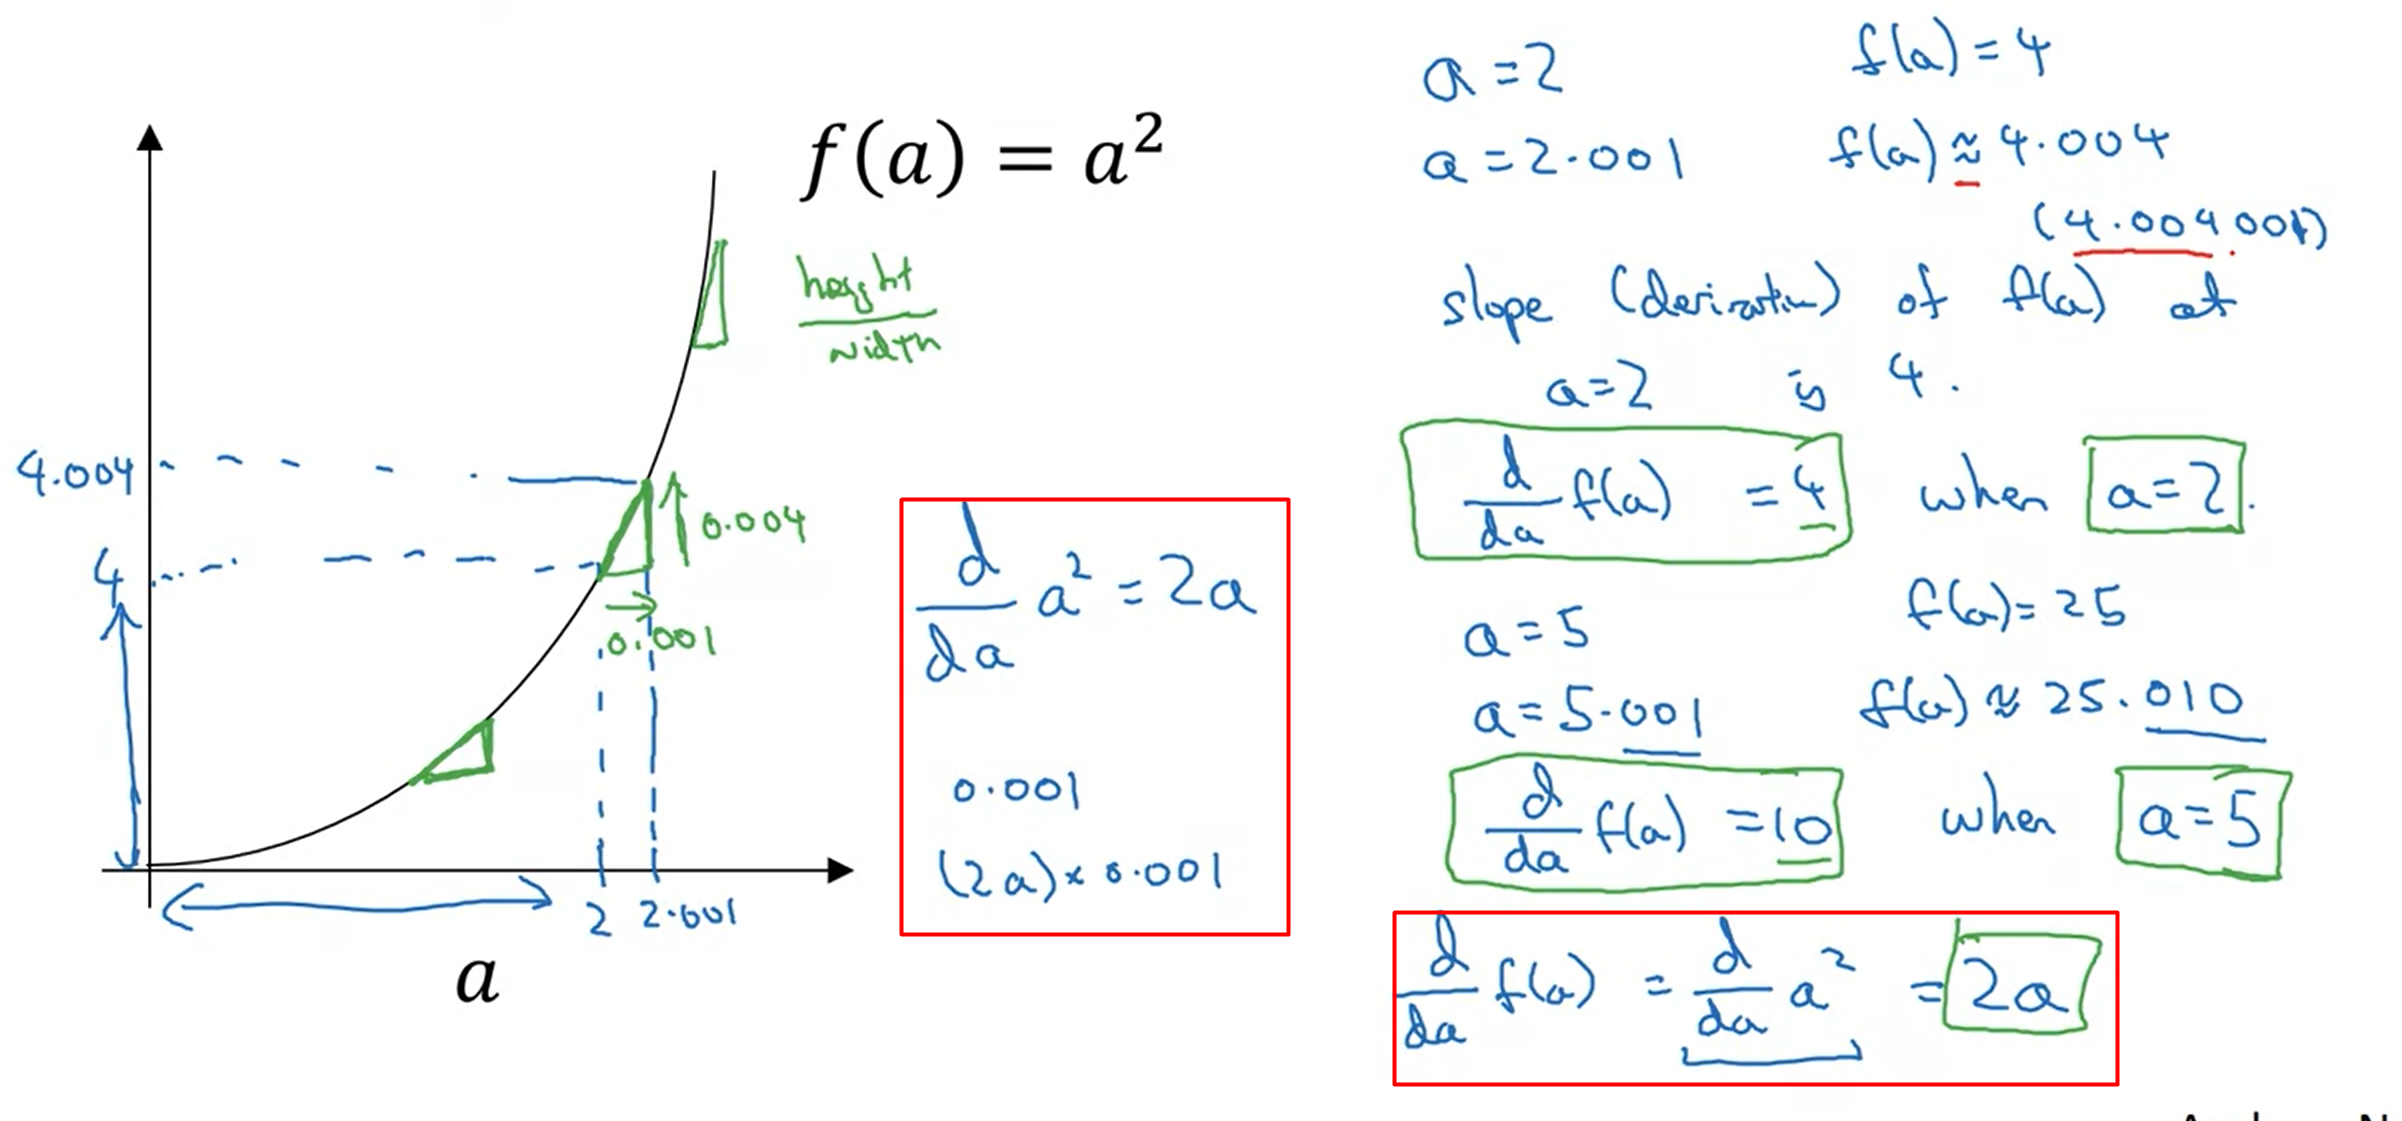 f(a) = a²
height
width
4.004
4
0.004
0.001
2 2.001
a
d/da a² = 2a
0.001
(2a) × 0.001
a = 2 f(a) = 4
a = 2.001 f(a) ≈ 4.004
(4.004001)
slope (derivative) of f(a) at
a = 2 is 4.
d/da f(a) = 4 when a = 2.
a = 5 f(a) = 25
a = 5.001 f(a) ≈ 25.010
d/da f(a) = 10 when a = 5
d/da f(a) = d/da a² = 2a